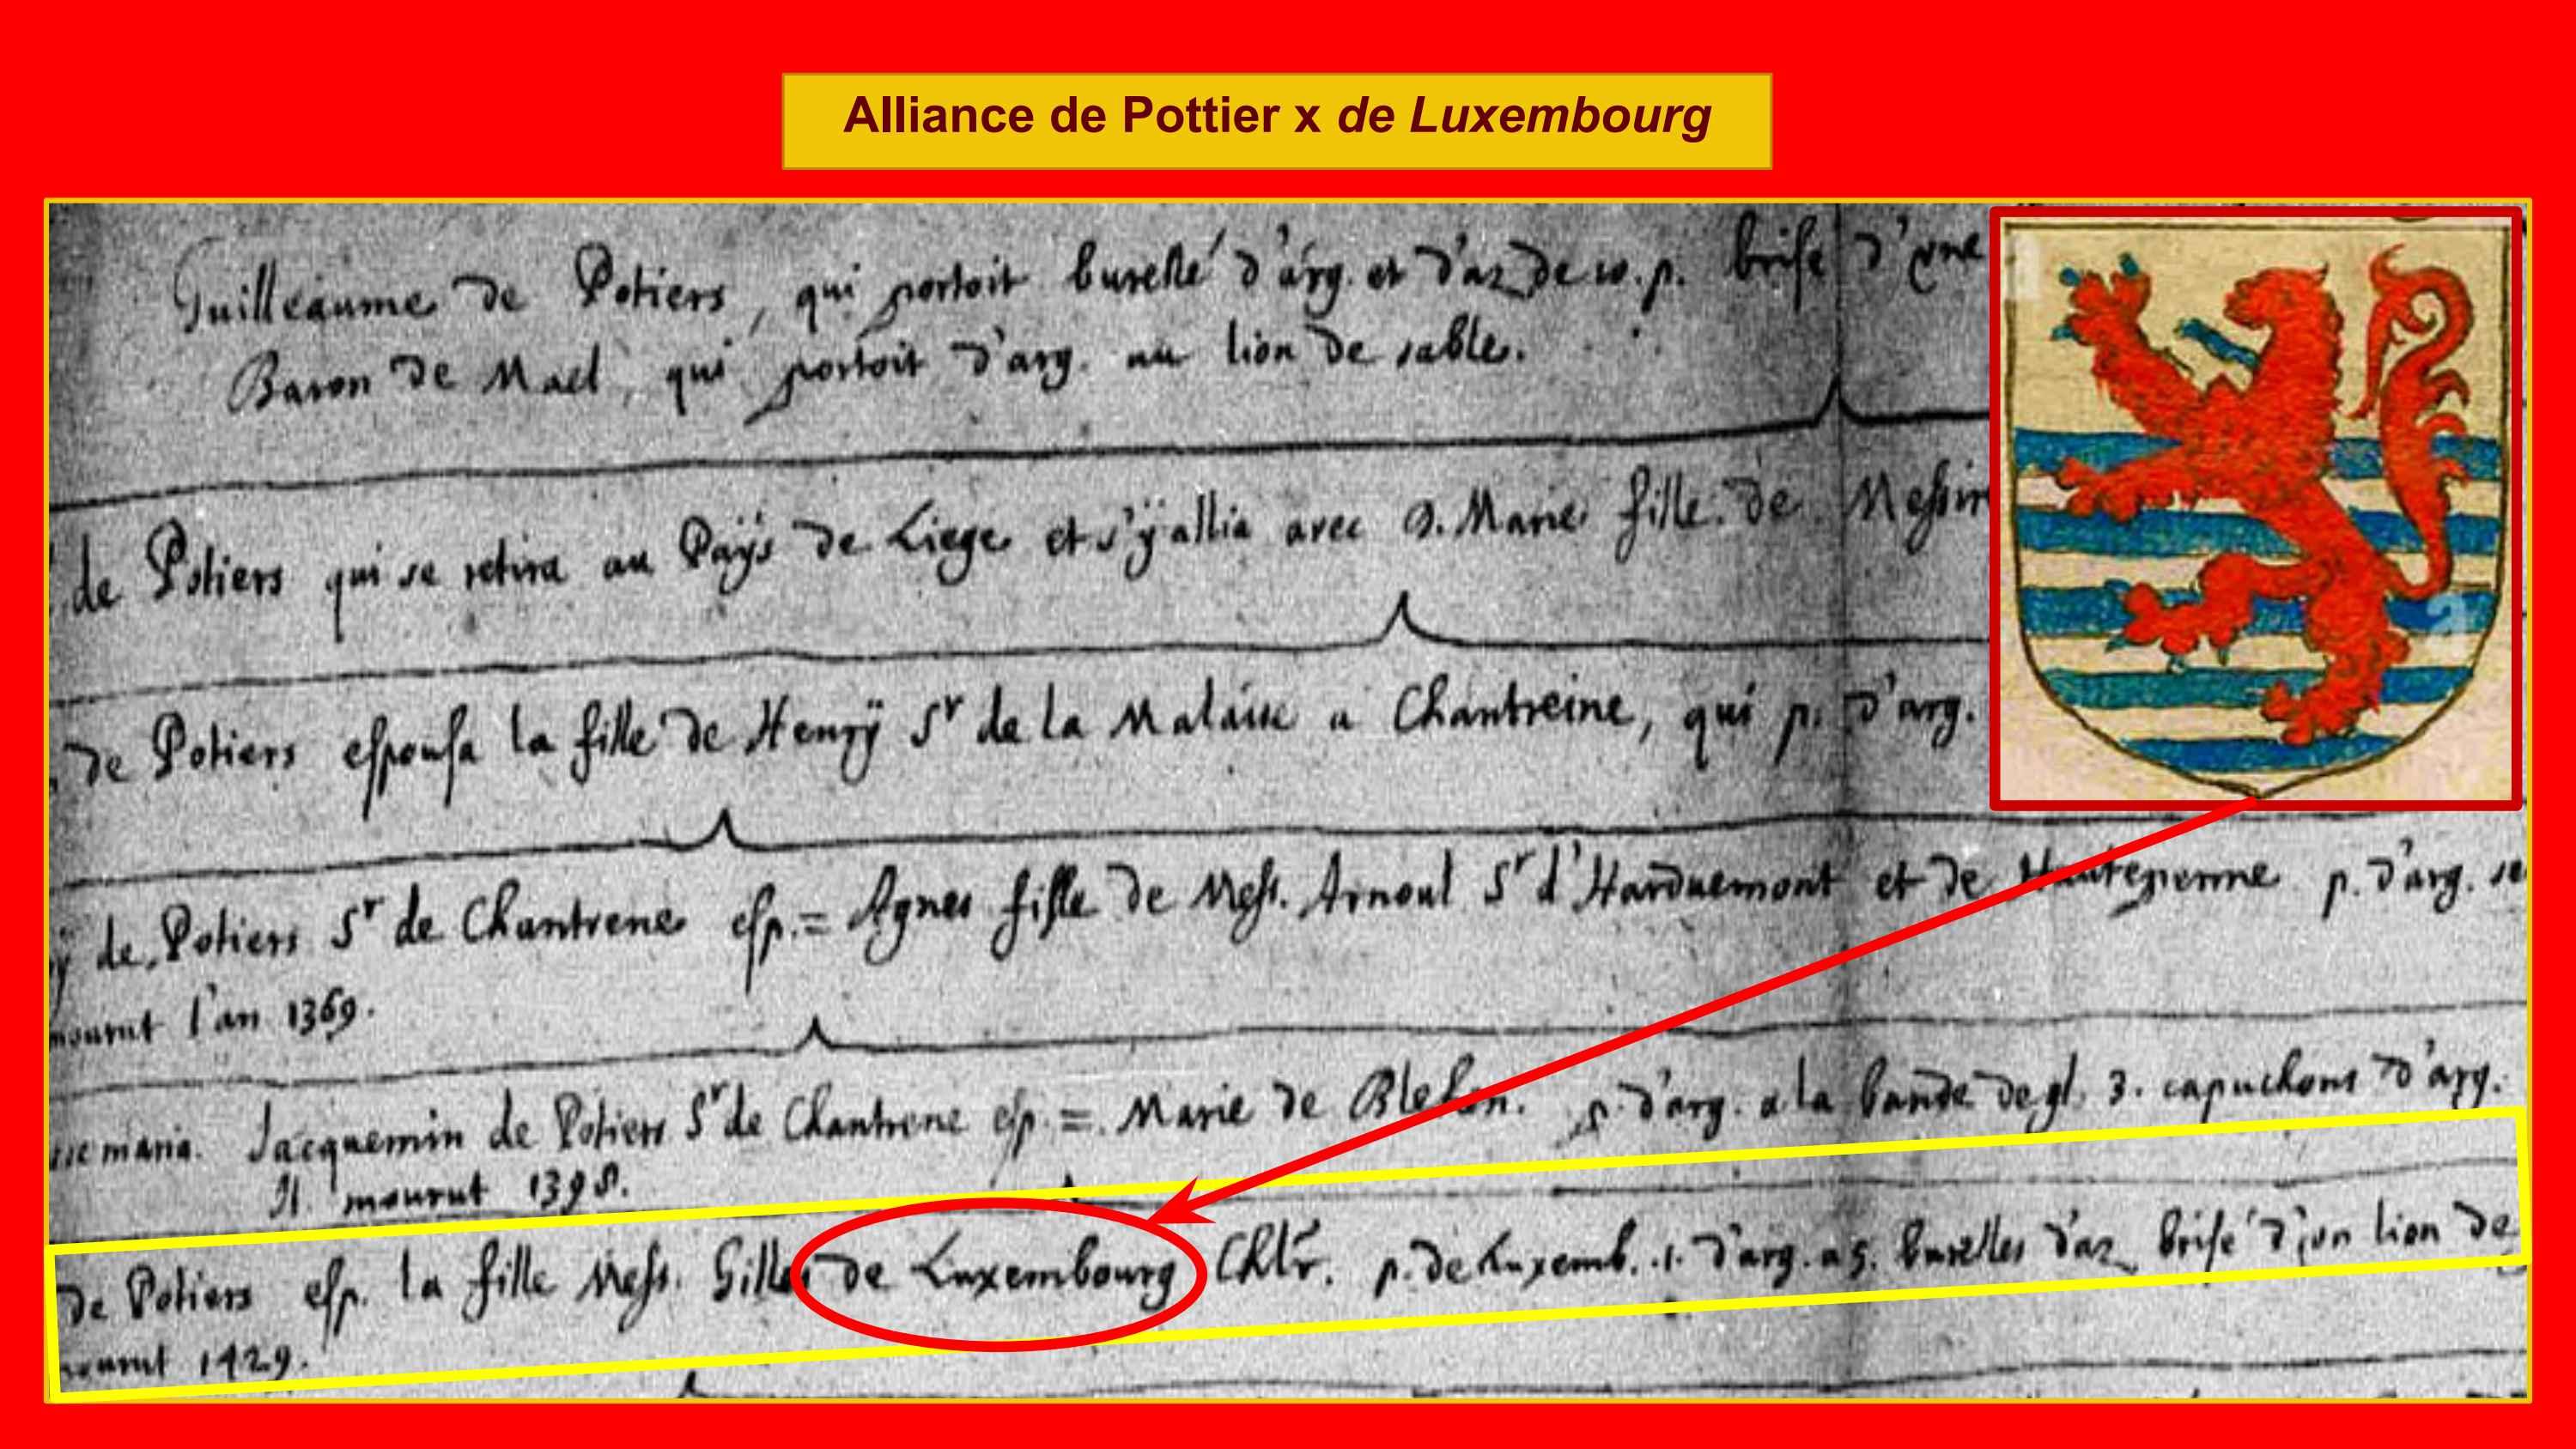 Alliance de Pottier x de Luxembourg
Guilleaume de Potiers, qui portoit burellé d'arg. et d'az de w. p. brisé d'une
Baron de Mael, qui portoit d'arg. au lion de sable.
de Potiers qui se retira au Paÿs de Liege et s'ÿ allia avec D. Marie fille de Messire
de Potiers espousa la fille de Henrÿ Sr de la Malaise a Chantreine, qui p. d'arg.
ÿ de Potiers Sr de Chantrene esp.= Agnes fille de Mess. Arnoul Sr d'Harduemont et de Hautepenne p. d'arg. se
mourut l'an 1369.
maria. Jacquemin de Potiers Sr de Chantrene esp. =. Marie de Blehen. p. d'arg. a la bande de gl. 3. capuchons d'arg.
Il mourut 1398.
de Potiers esp. la fille Mess. Gilles de Luxembourg Chlr. p. de Luxemb. .1. d'arg. a 5. burelles d'az brisé d'un lion de
mourut 1429.